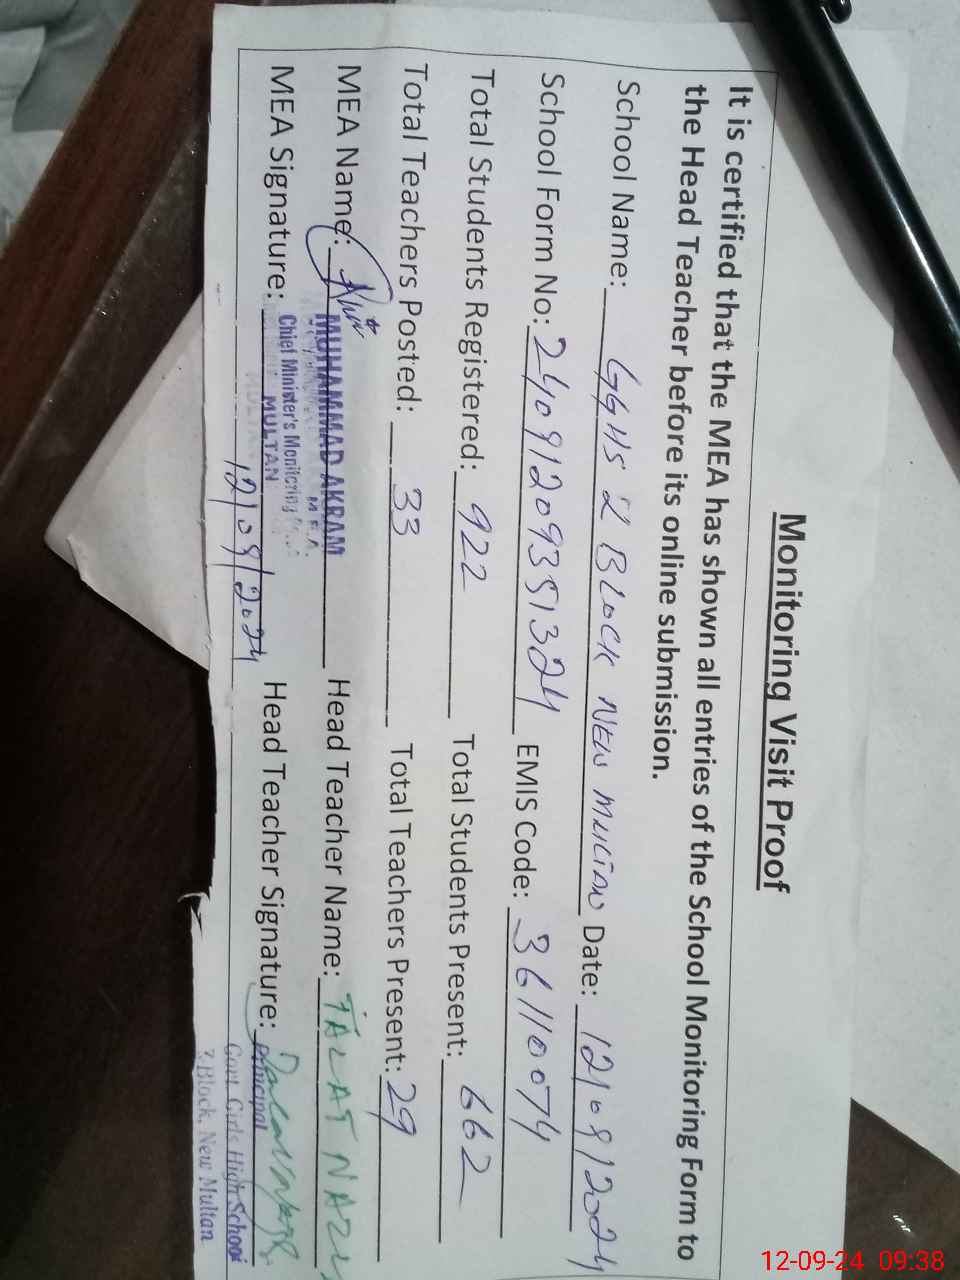 Monitoring Visit Proof
It is certified that the MEA has shown all entries of the School Monitoring Form to
the Head Teacher before its online submission.
School Name: GGHS Z BLOCK NEW MULTAN Date: 12/09/2024
School Form No: 24091209351324 EMIS Code: 36110074
Total Students Registered: 922 Total Students Present: 662
Total Teachers Posted: 33 Total Teachers Present: 29
MEA Name: MUHAMMAD AKRAM Head Teacher Name: TALAT NAZ
M.E.A.
Chief Minister's Monitoring
MEA Signature: MULTAN Head Teacher Signature:
12/09/2024
Principal
Govt. Girls High School
Z.Block, New Multan
12-09-24 09:38